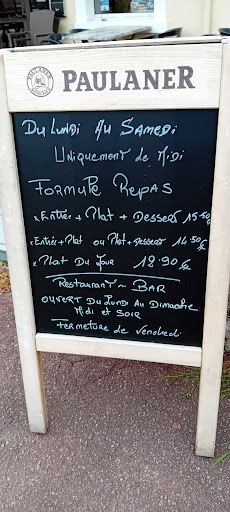 PAULANER
MÜNCHEN
PAULANER
Du Lundi Au Samedi
Uniquement de Midi
Formule Repas
x Entrée + Plat + Dessert 15.50
x Entrée + Plat ou Plat + Dessert 14.50
x Plat Du Jour 12.90
Restaurant ~ Bar
Ouvert Du Lundi Au Dimanche
Midi et Soir
Fermeture de Vendredi